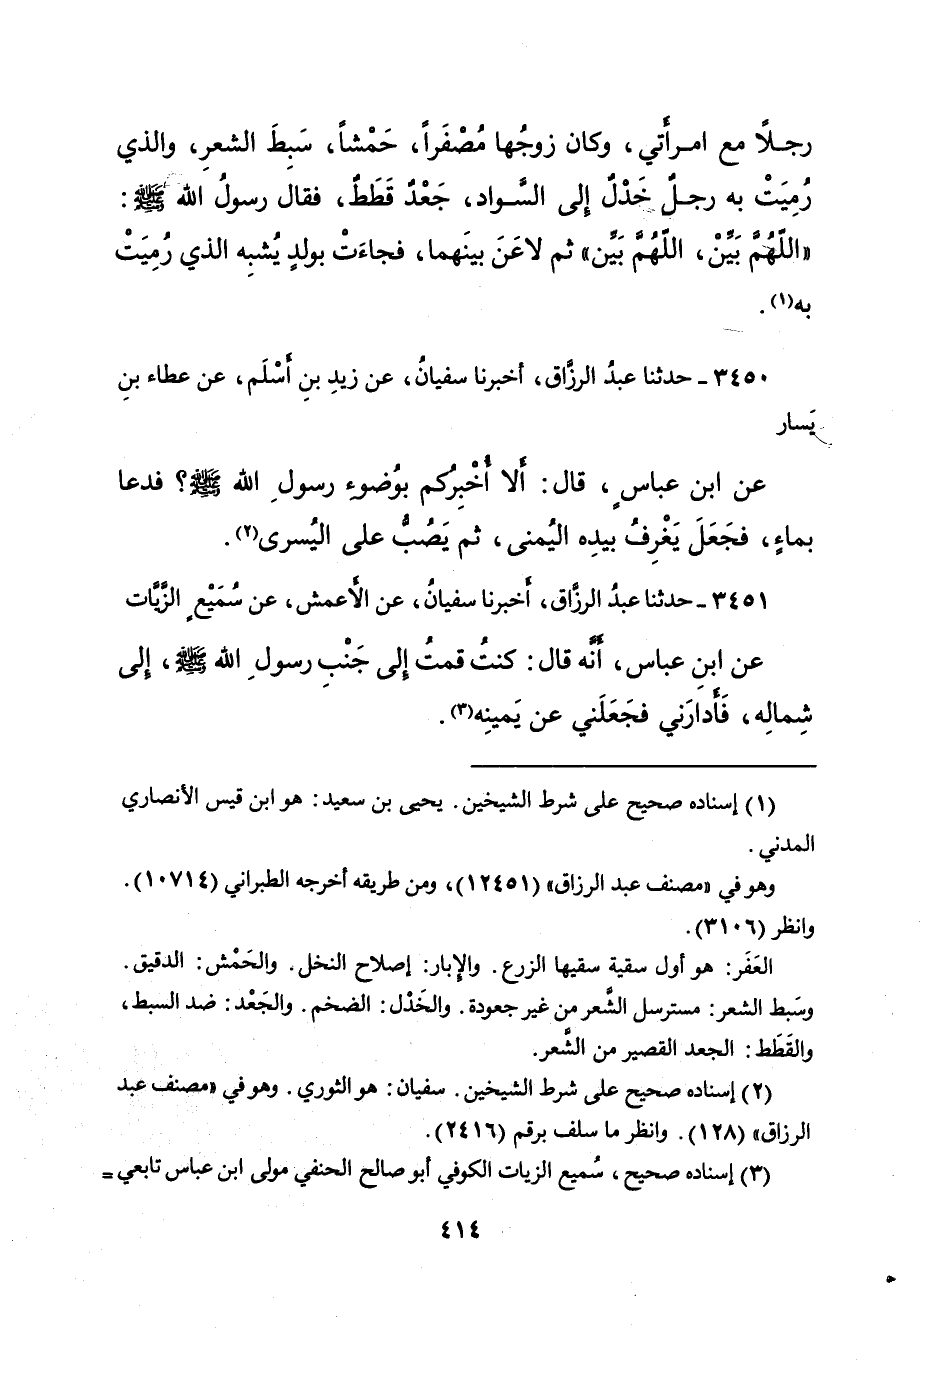 رجـلاً مع امـرأَتي، وكان زوجُها مُصْفَراً، حَمْشاً، سَبِطَ الشعرِ، والذي
رُمِيَتْ به رجـلٌ خَدْلٌ إلى السَّـواد، جَعْدٌ قَطَطٌ، فقال رسولُ الله ﷺ:
«اللَّهُمَّ بَيِّنْ، اللَّهُمَّ بَيِّن» ثم لاعَنَ بينَهما، فجاءَتْ بولدٍ يُشبِه الذي رُمِيَتْ
به(١).
٣٤٥٠ ـ حدثنا عبدُ الرزَّاق، أخبرنا سفيانُ، عن زيدِ بنِ أَسْلَم، عن عطاء بنِ
يَسار
عن ابن عباسٍ، قال: أَلا أُخْبِرُكم بوُضوءِ رسولِ الله ﷺ؟ فدعا
بماءٍ، فجَعَلَ يَغْرِفُ بيدِه اليُمنى، ثم يَصُبُّ على اليُسرى(٢).
٣٤٥١ ـ حدثنا عبدُ الرزَّاق، أَخبرنا سفيانُ، عن الأَعمش، عن سُمَيْعٍ الزَّيَّات
عن ابنِ عباس، أَنَّه قال: كنتُ قمتُ إلى جَنْبِ رسولِ الله ﷺ، إلى
شِمالِه، فَأَدارَني فجَعَلَني عن يَمينِه(٣).
(١) إسناده صحيح على شرط الشيخين. يحيى بن سعيد: هو ابن قيس الأنصاري
المدني.
وهو في «مصنف عبد الرزاق» (١٢٤٥١)، ومن طريقه أخرجه الطبراني (١٠٧١٤).
وانظر (٣١٠٦).
العَفَر: هو أول سقية سقيها الزرع. والإبار: إصلاح النخل. والحَمْش: الدقيق.
وسَبط الشعر: مسترسل الشَّعر من غير جعودة. والخَدْل: الضخم. والجَعْد: ضد السبط،
والقَطَط: الجعد القصير من الشَّعر.
(٢) إسناده صحيح على شرط الشيخين. سفيان: هو الثوري. وهو في «مصنف عبد
الرزاق» (١٢٨). وانظر ما سلف برقم (٢٤١٦).
(٣) إسناده صحيح، سُميع الزيات الكوفي أبو صالح الحنفي مولى ابن عباس تابعي =
٤١٤